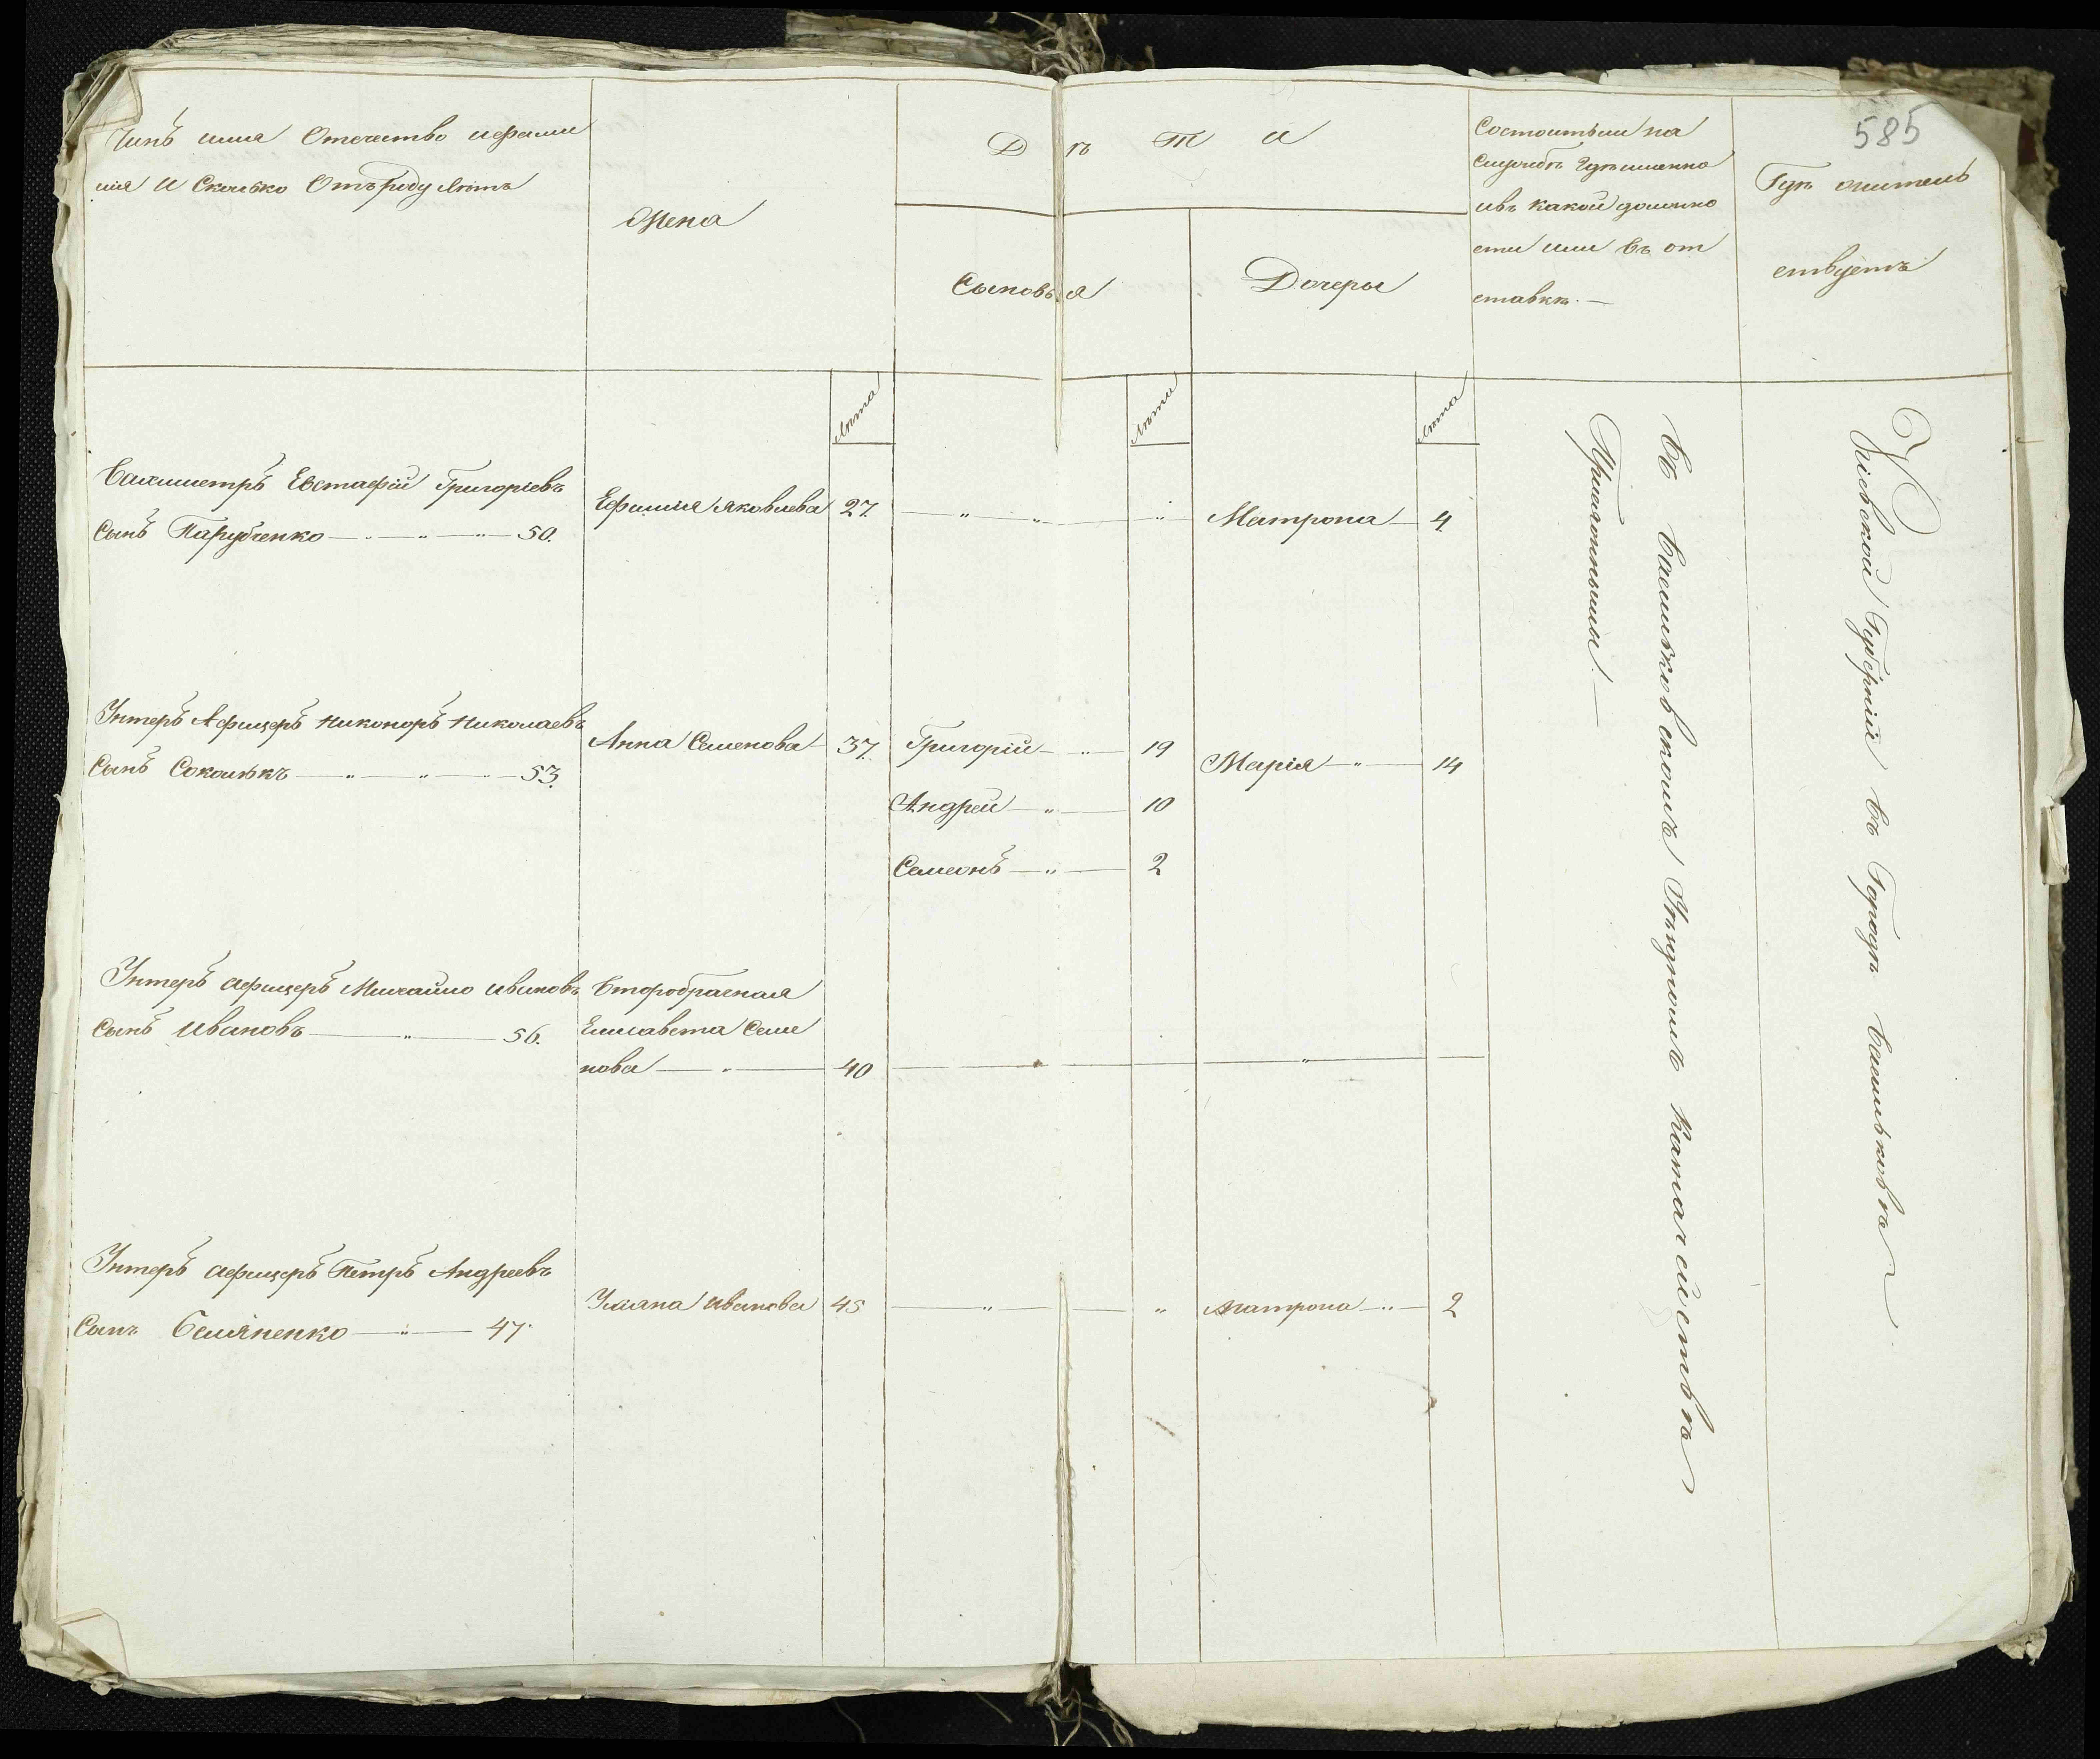 585
Чинъ имя Отечество ифами
лія И Сколько Отъ роду лѣтъ
Жена
Дѣти
Сыновья
Дочеры
Состоитъли на
Службѣ Гдѣ именно
ивъ какой должно
сти или въ от
ставкѣ. —
Гдѣ жител
ствуетъ
лѣта
лѣта
лѣта
Вахмистръ Евстафій Григоріевъ
Сынъ Парубченко — 50.
Ефимія Яковлева 27.
Матрона — 4
Унтеръ Афицеръ Никоноръ Николаевъ
Сынъ — 53.
Анна Семенова 37.
Григорій — 19
Андрей — 10
Семеонъ — 2
Марія — 14
Унтеръ Афицеръ Михайло Ивановъ
Сынъ Ивановъ — 56.
Второбрачная
Елисавета Семе
нова — 40
Унтеръ Афицеръ Петръ Андреевъ
Сынъ — 47.
Уліана Иванова 45
Матрона — 2
въ Васильковскомъ Уѣздномъ Казначействѣ
Присяжными. —
Кіевской Губерніи въ Городѣ Васильковѣ